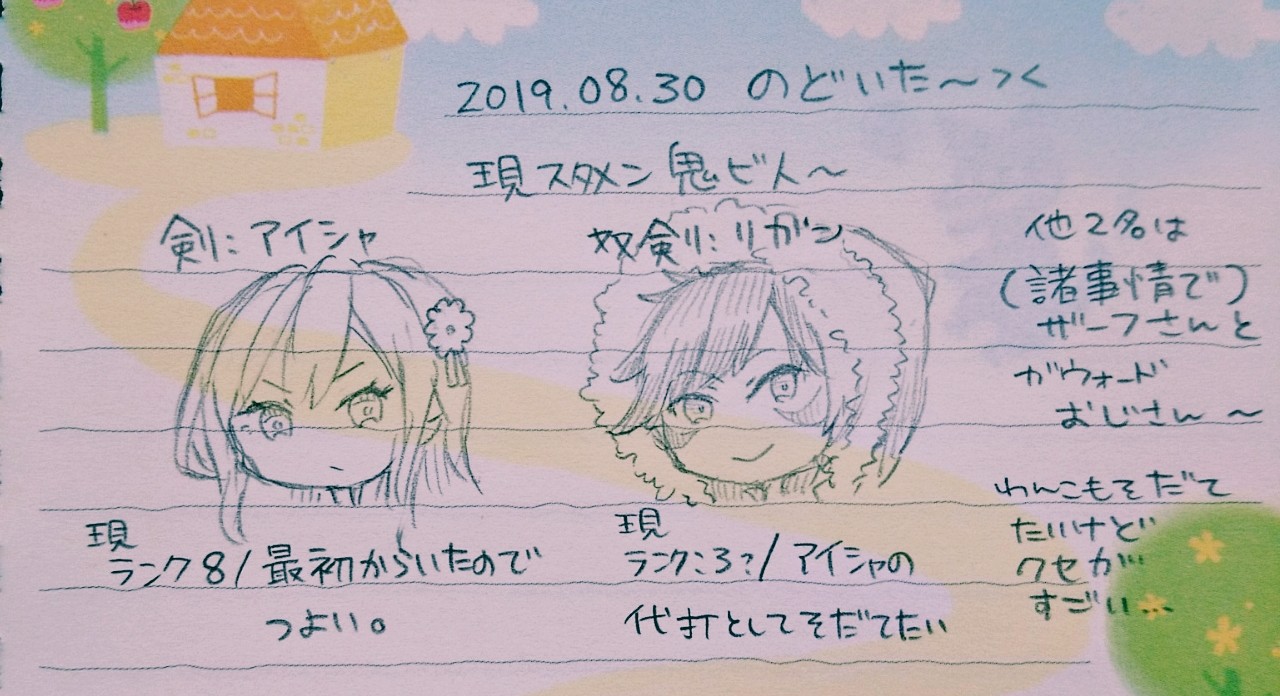 2019.08.30 のどいた〜っく
現スタメン鬼ビ人〜
剣:アイシャ
奴剣:リガン
他2名は
(諸事情で)
ザーフさんと
ガウォード
おじさん〜
わんこもそだて
たいけど
クセが…
すごい…
現
ランク8/最初からいたので
つよい。
現
ランク:3?/アイシャの
代打としてそだてたい